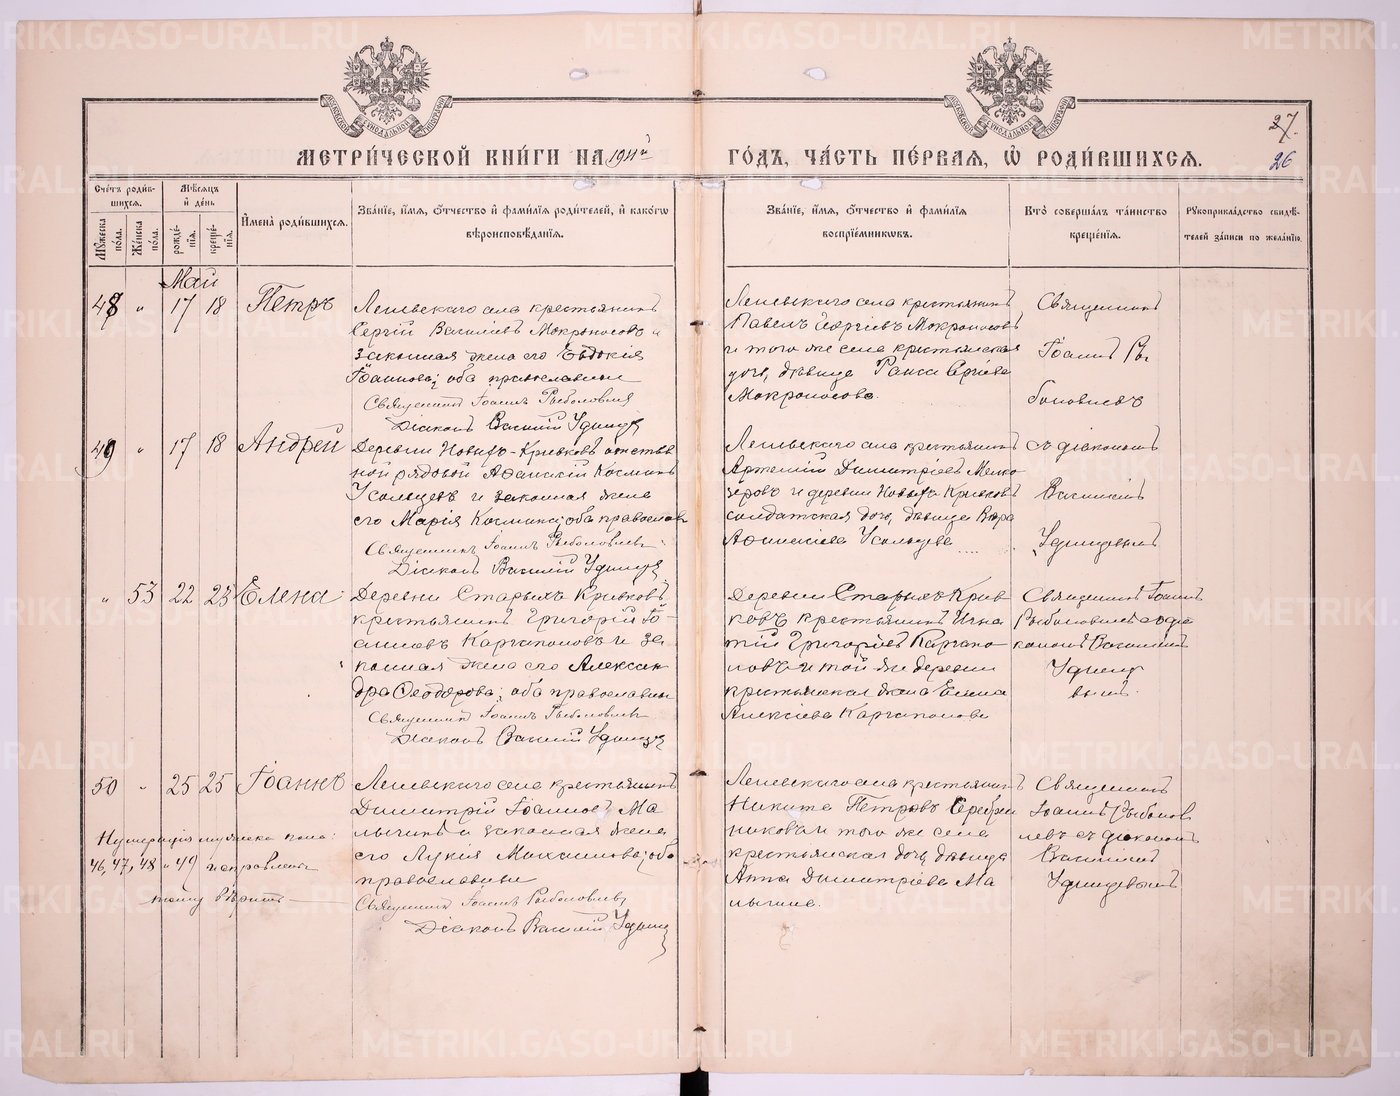 МЕТРИ́ЧЕСКОЙ КНИ́ГИ НА 1911й ГО́ДЪ, ЧА́СТЬ ПЕ́РВАЯ, Ѿ РОДИ́ВШИХСЯ.
27.
26
Сче́тъ роди́в-
шихся.
Му́жеска по́ла.
Же́нска по́ла.
Мѣ́сяцъ
и҆ де́нь
рожде́-
нїя.
креще́-
нїя.
И҆мена̀ роди́вшихся.
Зва́нїе, и҆́мя, ѻ҆́тчество и҆ фами́лїя роди́телей, и҆ како́гѡ
вѣроисповѣ́данїя.
Зва́нїе, и҆́мя, ѻ҆́тчество и҆ фами́лїя
воспрїе́мниковъ.
Кто̀ соверша́лъ та́инство
креще́нїя.
Рукоприкла́дство свидѣ́-
телей за́писи по жела́нїю.
Май
48 " 17 18 Петръ
села крестьянинъ
Сергій Василіевъ Мокроносовъ и
законная жена его Евдокія
Іоаннова; оба православные
Священникъ Іоаннъ Рыболовлевъ
Діаконъ Василій Удинцевъ
села крестьянинъ
Павелъ Георгіевъ Мокроносовъ
и того же села крестьянская
дочь, дѣвица Раиса Сергіева
Мокроносова.
Священникъ
Іоаннъ Ры-
боловлевъ
49 " 17 18 Андрей
Деревни Новыхъ-Кривковъ
рядовой Косминъ
Усольцевъ и законная жена
его Марія Косминa; оба православн
Священникъ Іоаннъ Рыболовлевъ
Діаконъ Василій Удинцевъ
села крестьянинъ
Артемій Димитріевъ Мелко-
зеровъ и деревни Новыхъ Кривковъ
солдатская дочь, дѣвица Вѣра
Усольцева
съ діакономъ
Василіемъ
Удинцевымъ
" 53 22 23 Елена
Деревни Старыхъ Кривковъ
крестьянинъ Григорій Іо-
анновъ Каргаполовъ и за-
конная жена его Алексан-
дра Ѳеодорова; оба православные
Священникъ Іоаннъ Рыболовлевъ
Діаконъ Василій Удинцевъ
Деревни Старыхъ Крив-
ковъ крестьянинъ Игна-
тій Григоріевъ Каргапо-
ловъ и той же деревни
крестьянская жена
Алексіева Каргаполова
Священникъ Іоаннъ
Рыболовлевъ съ діа-
кономъ Василіемъ
Удинце-
вымъ.
50 " 25 25 Іоаннъ
села крестьянинъ
Димитрій Іоанновъ Ма-
лыгинъ и законная жена
его Лукія Михаилова; оба
православные
Священникъ Іоаннъ Рыболовлевъ
Діаконъ Василій Удинцевъ
села крестьянинъ
Никита Петровъ Серебрен-
никовъ и того же села
крестьянская дочь, дѣвица
Анна Димитріева Ма-
лыгина.
Священникъ
Іоаннъ Рыболов-
левъ съ діакономъ
Василіемъ
Удинцевымъ
Нумерація мужска пола:
46, 47, 48 и 49 исправленъ
тому вѣрить